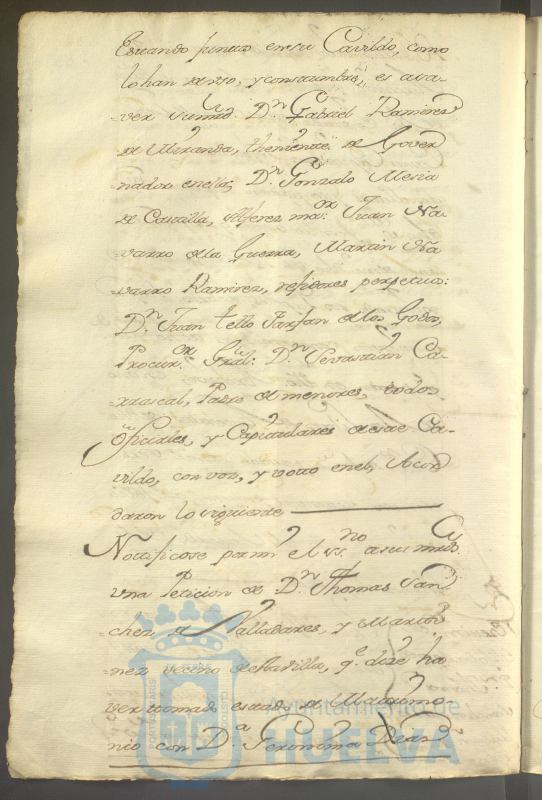 Estando juntos en su Cavildo, como
lo han de uso, y constumbre, es a sa-
-ver su md. Dn. Gabriel Ramires
de Miranda, theniente de Gover
nador en ella; Dn. Gonzalo Mesia
de Castilla, Alferez maor. Juan Na-
-varro de la Guerra, Martin Na
varro Ramires, rejidores perpetuos:
Dn. Juan tello Farfan de los Godos,
Procuror. Gral: Dn. Sevastian Ca-
-rrascal, Padre de menores, todos
oficiales, y Capitulares de este Ca-
vildo, con voz, y voto en el, Acor
daron lo siguiente
Notificose por mi el ss.no a sus mrds.
una Peticion de Dn. Thomas San
chez de Valladares, y Martin
nez vecino de Sevilla, q.e dize ha
ver tomado estado de Matrimo
nio con D.a Geronima
Ayuntamiento de
HUELVA